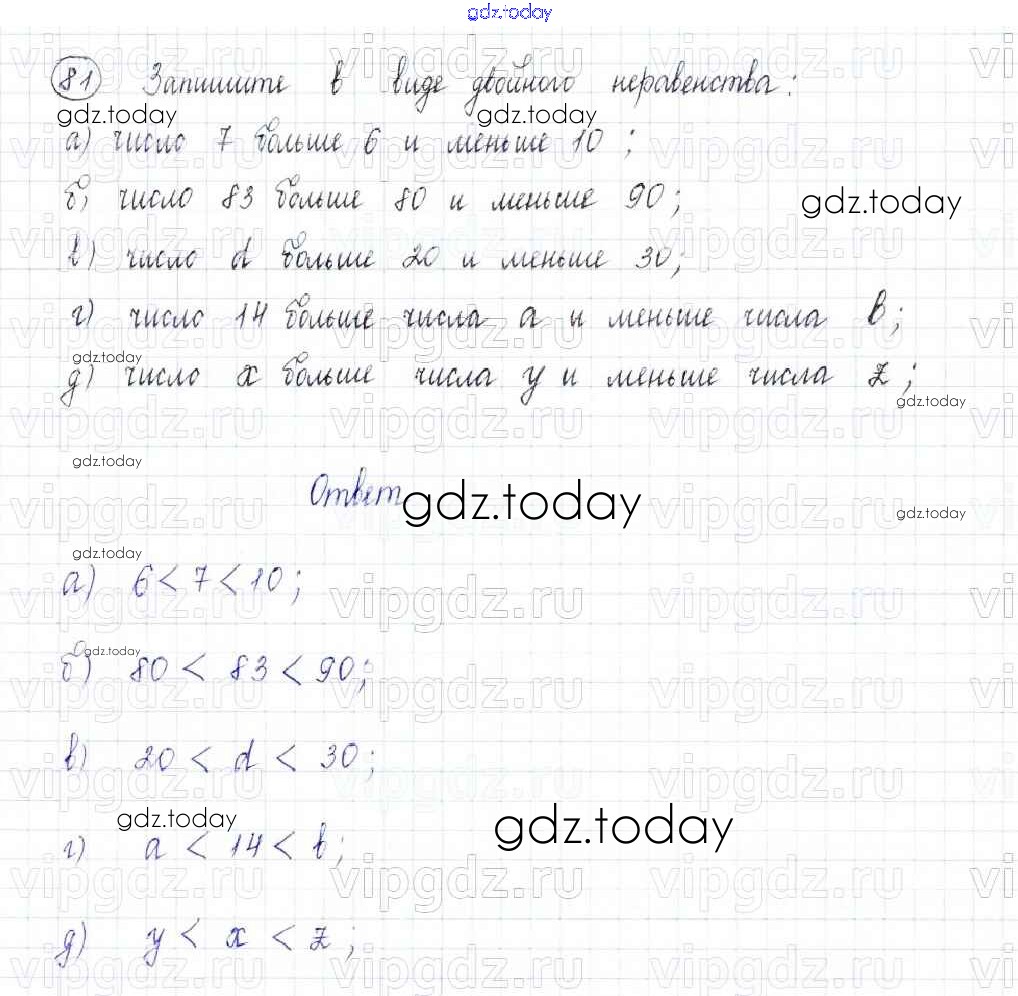 gdz.today
81 Запишите в виде двойного неравенства:
gdz.today
а) число 7 больше 6 и меньше 10;
б) число 83 больше 80 и меньше 90;
gdz.today
в) число d больше 20 и меньше 30;
г) число 14 больше числа a и меньше числа b;
gdz.today
д) число x больше числа y и меньше числа z;
gdz.today
vipgdz.ru vipgdz.ru vipgdz.ru
gdz.today
Ответ
gdz.today
gdz.today
gdz.today
а) 6 < 7 < 10;
gdz.today
б) 80 < 83 < 90;
в) 20 < d < 30;
gdz.today
gdz.today
г) a < 14 < b;
д) y < x < z;